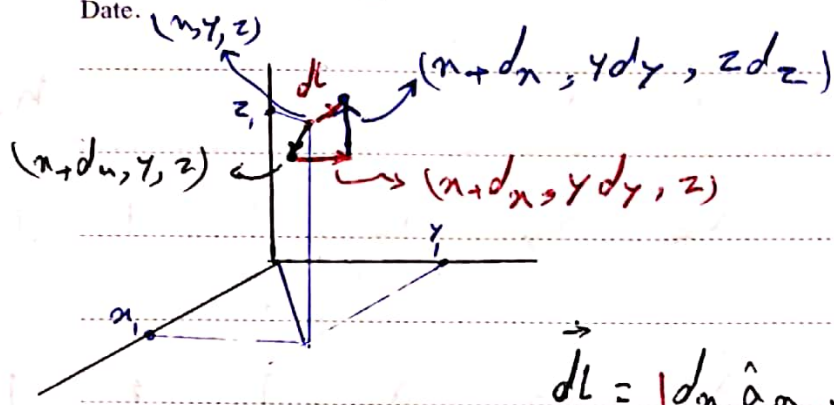 Date. (x,y,z)
dl
(x+dx, ydy, zdz)
z₁
(x+dx, y, z)
(x+dx, ydy, z)
y₁
x₁
dl⃗ = 1dx âx